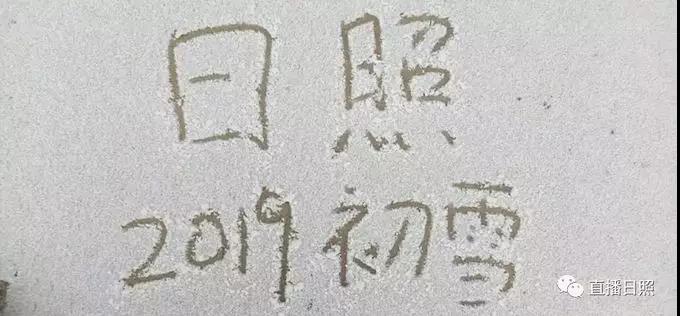 日照
2019初雪
直播日照